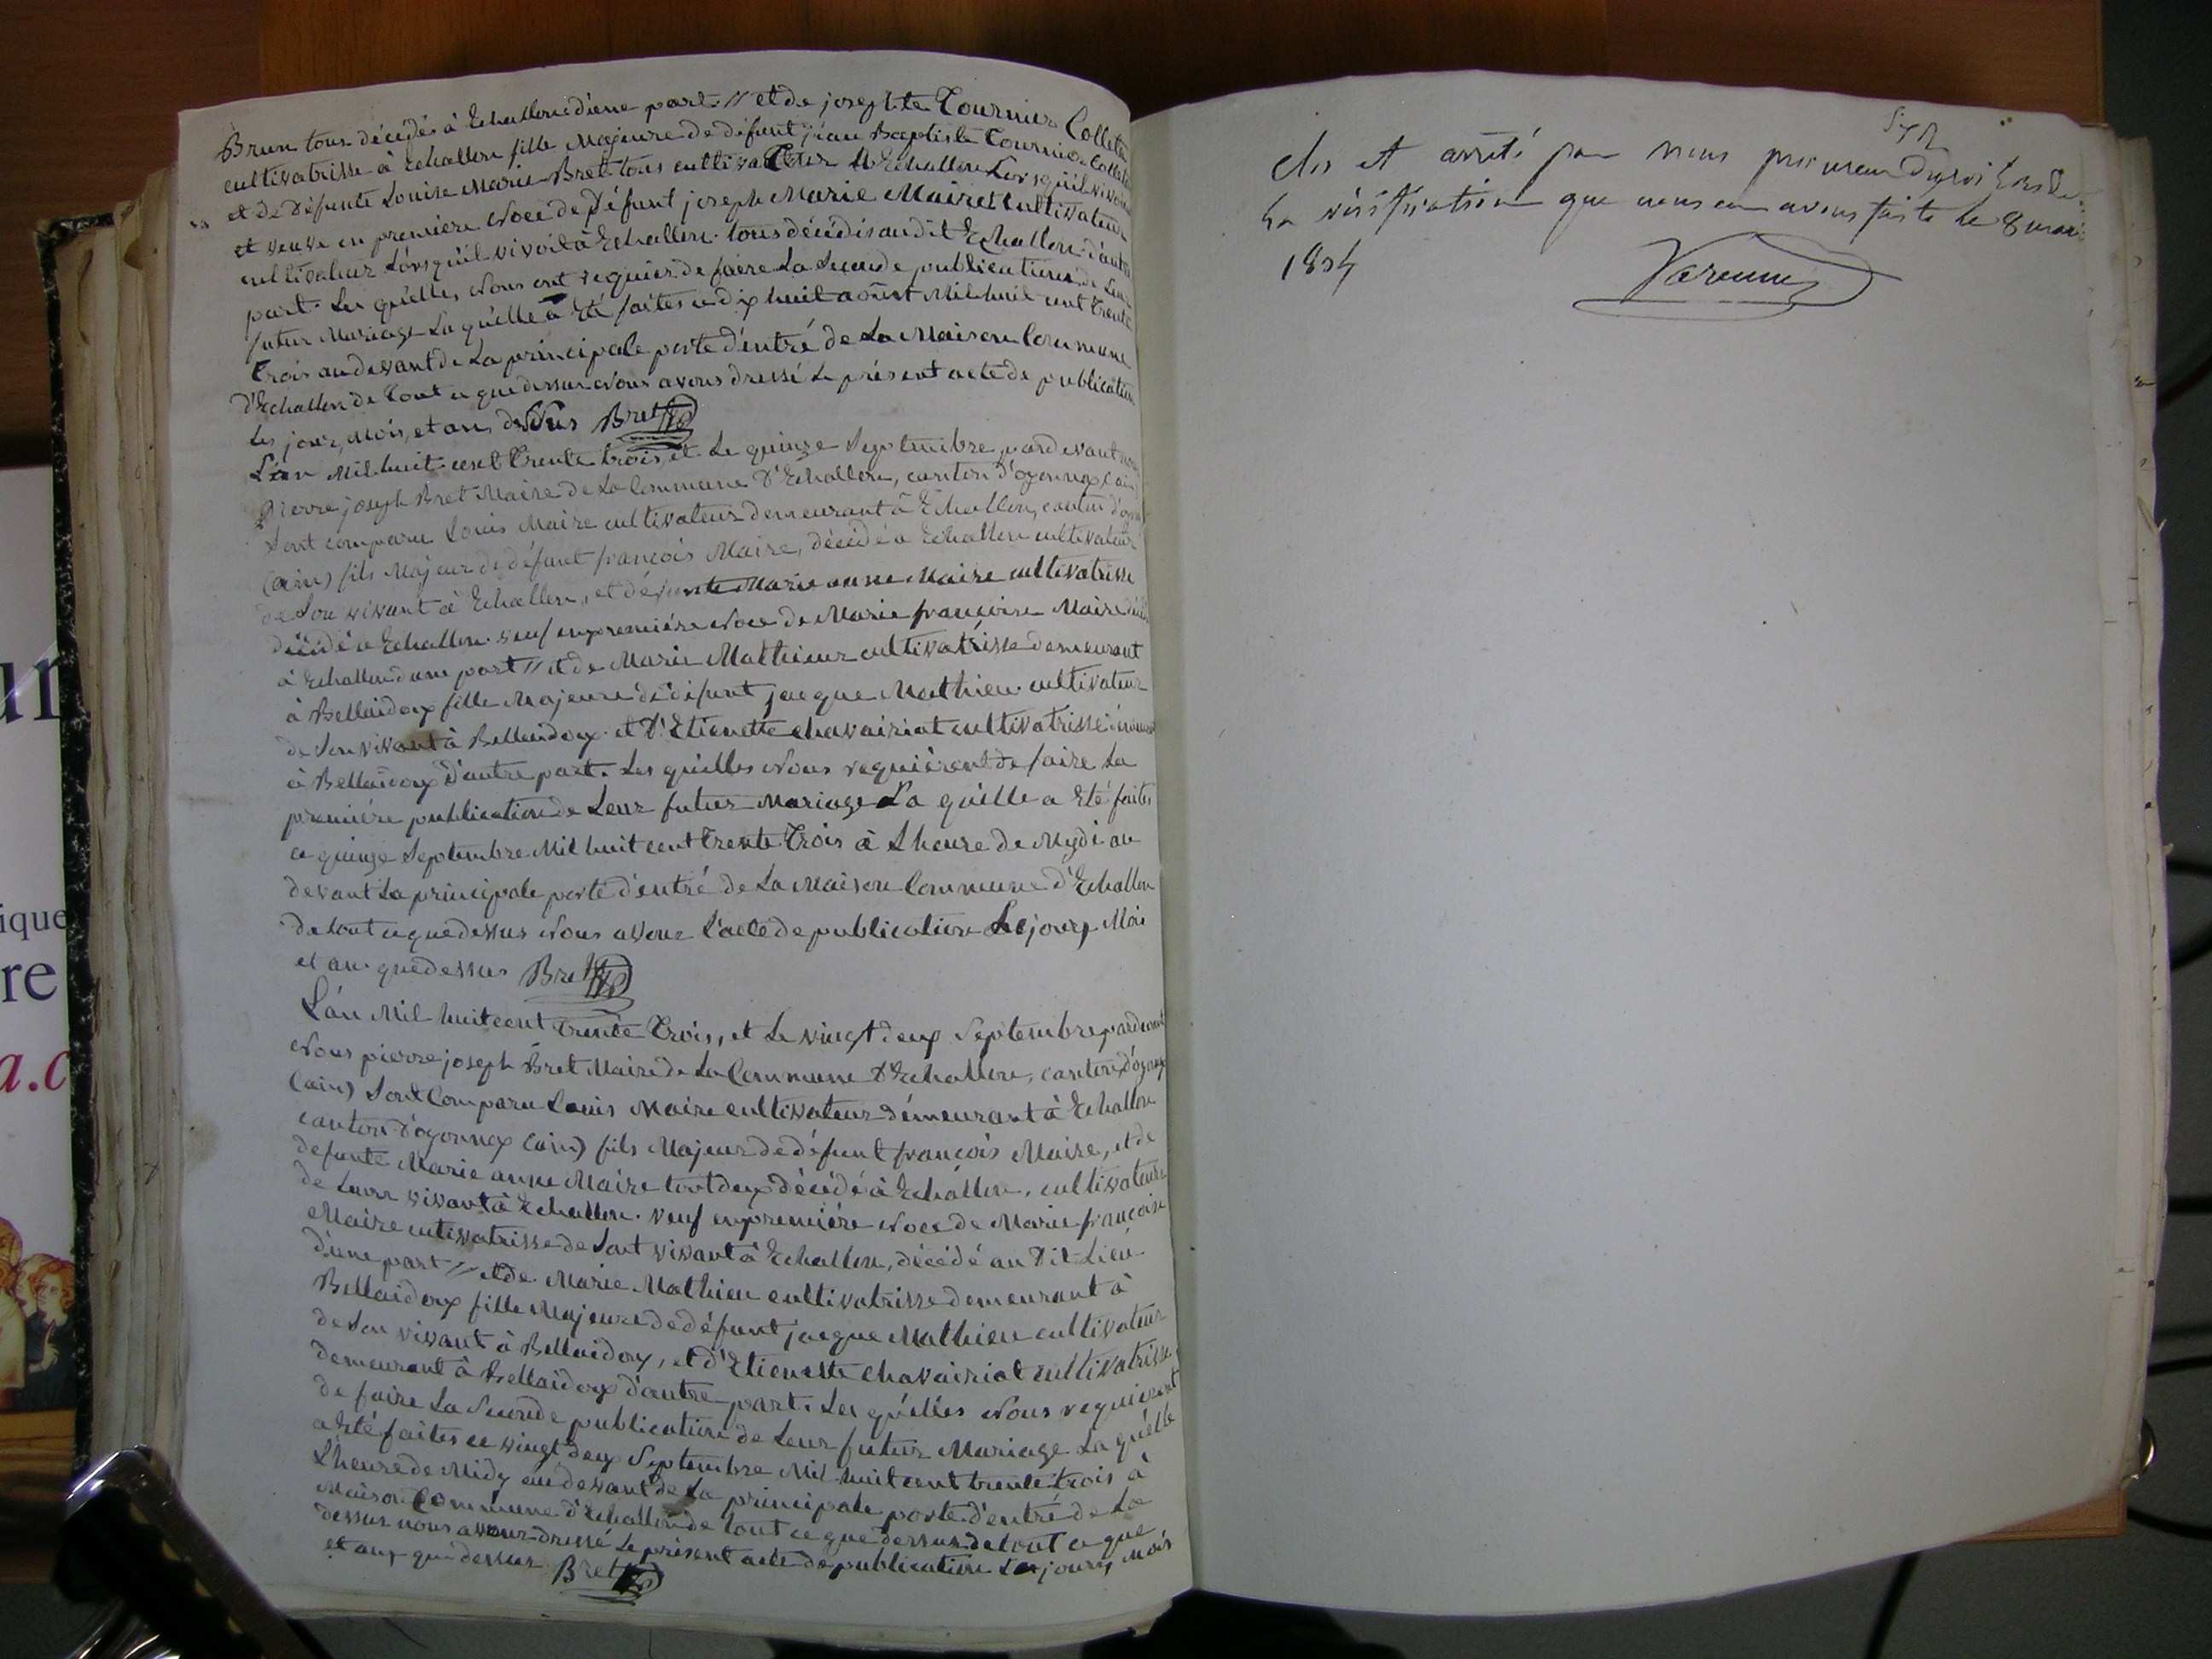 Brun tous décédés à Echallon d'une part // et de josephte Tournier Collete
cultivatrisse à Echallon fille Majeure de défunt jean Baptiste Tournier Collet
et de défunte Louise Marie Bret tous cultivateur à Echallon Lorsqu'il vivoit
et veuve en premiére Noce de Défunt joseph Marie Mairet Cultivateur
cultivateur Lorsqu'il vivoit à Echallon. tous décédés audit Echallon d'autre
part. Les quélles, Nous ont requier de faire La Seconde publication de Leur
futur Mariage La quélle à Eté faites ce dix huit aoust Mil huit cent trente
Trois au devant de La principale porte d'éntré de La Maison Commune
d'Echallon de Tout ce que dessus Nous avons dressé Le présent acte de publication
Les jour, Mois, et an, dessus Bret
L'an Mil huit cent Trente trois, et Le quinze Septembre, pardevant nous
Pierre joseph Bret Maire de La Commune D'Echallon, canton d'oyonnax (ain)
Sont comparu Louis Maire cultivateur demeurant à Echallon, canton d'oyonnax
(ain) fils Majeur de défunt françois Maire, décédé à Echallon cultivateur
de Son vivant à Echallon, et défunte Marie anne Maire cultivatrisse
décédé à Echallon. veuf en premiére Noce de Marie françoise Maire
à Echallon d'une part // et de Marie Mathieur cultivatrisse demeurant
à Bellaidoux fille Majeure de défunt jacque Mathieu cultivateur
de Son vivant à Bellaidoux. et D'Etienette chavairiat cultivatrisse
à Bellaidoux D'autre part. Les quélles Nous requiérent de faire La
premiére publication de Leur futur Mariage La quélle a Eté faites
ce quinze Septembre Mil huit cent trente Trois à Lheure de Mydi au
devant La principale porte d'éntré de La Maison Commune d'Echallon
de tout ce que dessus Nous avons L'acte de publication Le jour, Mois
et an que dessus Bret
L'án Mil huit cent trente Trois, et Le vingt deux Septembre pardevant
Nous pierre joseph Bret Maire de La Commune D'Echallon, canton d'oyonax
(ain) Sont Comparu Louis Maire cultivateur démeurant à Echallon
canton d'oyonnax (ain) fils Majeur de défunt françois Maire, et de
defunte Marie anne Maire tout deux décédé à Echallon, cultivateur
de Leur vivant à Echallon. veuf en premiére Noce de Marie françoise
Maire cultivatrisse de Sont vivant à Echallon, décédé au Dit Lieu
d'une part // et de Marie Mathieu cultivatrisse demeurant à
Bellaidoux fille Majeure de défunt jacque Mathieu cultivateur
de Son vivant à Bellaidoux, et d'Etienette chavairiat cultivatrisse
demeurant à Bellaidoux d'autre part. Les quélles Nous requiérent
de faire La Seconde publication de Leur futur Mariage La quélle
a Eté faites ce vingt deux Septembre Mil huit cent trente trois à
Lheure de Midy au devant de La principale porte d'éntré de La
Maison Commune d'Echallon de tout ce que dessus de tout ce que
dessus nous avons dressé Le présent acte de publication Les jours, Mois
et an que dessus Bret
clos et arrêté par nous procureur du roi
La vérification que nous en avons faite le 8 mars
1834
Varenne
ur
ique
re
a.c